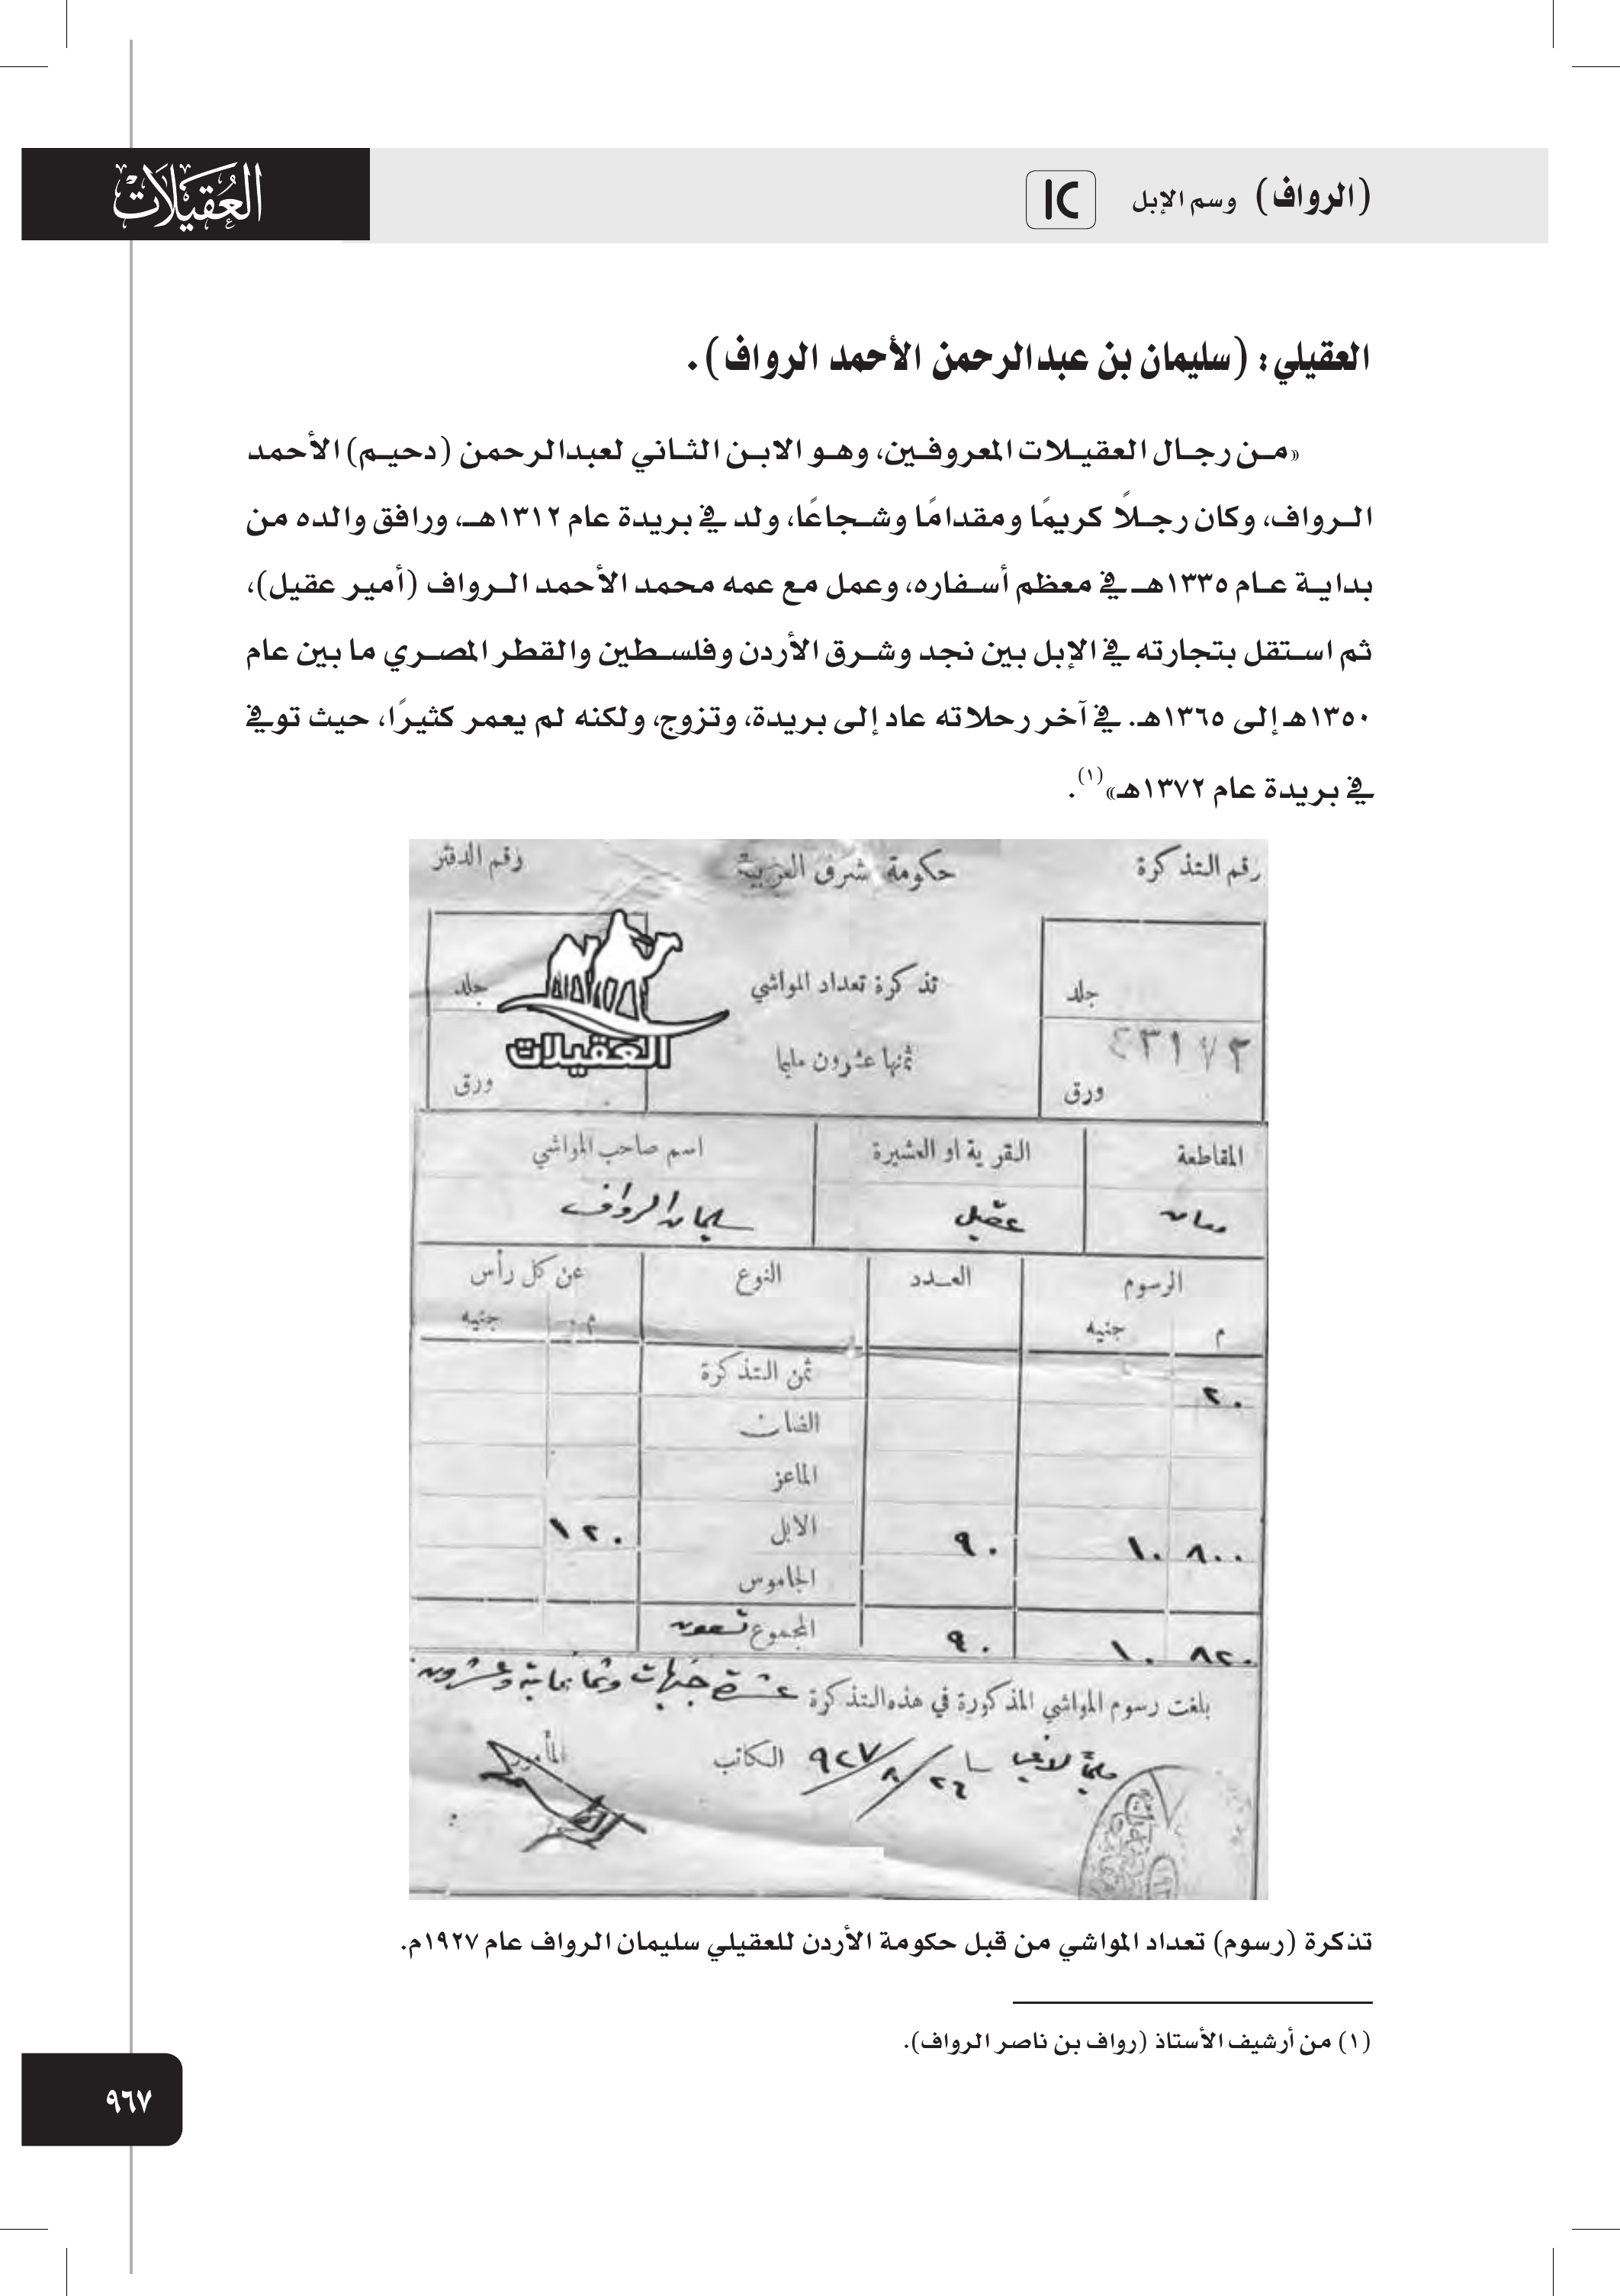 (الرواف) وسم الإبل
العقيلات
العقيلي: (سليمان بن عبدالرحمن الأحمد الرواف).
«من رجال العقيلات المعروفين، وهو الابن الثاني لعبدالرحمن (دحيم) الأحمد
الرواف، وكان رجلاً كريمًا ومقدامًا وشجاعًا، ولد في بريدة عام ١٣١٢هـ، ورافق والده من
بداية عام ١٣٣٥هـ في معظم أسفاره، وعمل مع عمه محمد الأحمد الرواف (أمير عقيل)،
ثم استقل بتجارته في الإبل بين نجد وشرق الأردن وفلسطين والقطر المصري ما بين عام
١٣٥٠هـ إلى ١٣٦٥هـ. في آخر رحلاته عاد إلى بريدة، وتزوج، ولكنه لم يعمر كثيرًا، حيث توفي
في بريدة عام ١٣٧٢هـ»(١).
رقم التذكرة حكومة شرق العربية رقم الدفتر
جلد تذكرة تعداد المواشي جلد
العقيلات
ثمنها عشرون مليما
ورق ورق
المقاطعة القرية او العشيرة اسم صاحب المواشي
معان عقيل سليمان الرواف
الرسوم العدد النوع عن كل رأس
م جنيه م جنيه
٢٠ ثمن التذكرة
الضان
الماعز
٨٠٠ ١٠ ٩٠ الابل ١٢٠
الجاموس
٨٢٠ ١٠ ٩٠ المجموع تسعون
بلغت رسوم المواشي المذكورة في هذه التذكرة عشرة جنيهات وثمانماية وعشرون
مليماً لاغير ٢٤/٨/٩٢٧ الكاتب المأمور
تذكرة (رسوم) تعداد المواشي من قبل حكومة الأردن للعقيلي سليمان الرواف عام ١٩٢٧م.
(١) من أرشيف الأستاذ (رواف بن ناصر الرواف).
٩٦٧